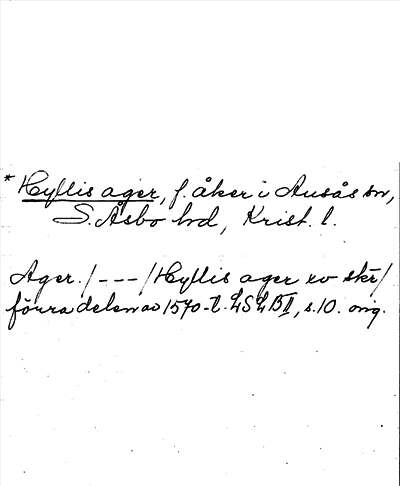 * Hyllis ager, f. åker i Ausås sn,
S. Åsbo hd, Krist. l.
Ager. /---/ Hyllis ager xv skr/
förra delen av 1570-t. LSLBII, s.10. orig.